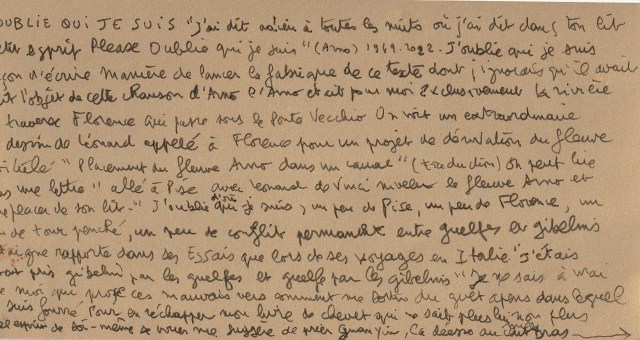 OUBLIE QUI JE SUIS "J'ai dit à toutes les nuits où j'ai dit dans ton lit
esprit Please Oublie qui je suis" (Arno) 1949-2022. J'oublie qui je suis
çon d'écrire manière de lancer la fabrique de ce texte dont j'ignorais qu'il avait
l'objet de cette chanson d'Arno l'Arno était pour moi exclusivement la rivière
traverse Florence qui passe sous le Ponte Vecchio On voit un extraordinaire
dessin de Léonard appelé à Florence pour un projet de dérivation du fleuve
"Placement du fleuve Arno dans un canal" (traduction) on peut lire
une lettre "allé à Pise avec Léonard de Vinci niveler le fleuve Arno et
de son lit-" J'oublie d'où qui je suis, un peu de Pise, un peu de Florence, un
de tour penché, un peu de conflit permanent entre guelfes et gibelins
rapporte dans ses Essais que lors de ses voyages en Italie "j'étais
pris gibelin par les guelfes et guelfe par les gibelins" Je ne sais à vrai
moi que ces mauvais vers comment me sortir du guêt apens dans lequel
suis fourré Pour en réchapper mon livre de chevet qui ne sait plus lui non plus
soi-même se me suggère de prier Guanyin, la déesse au mille bras